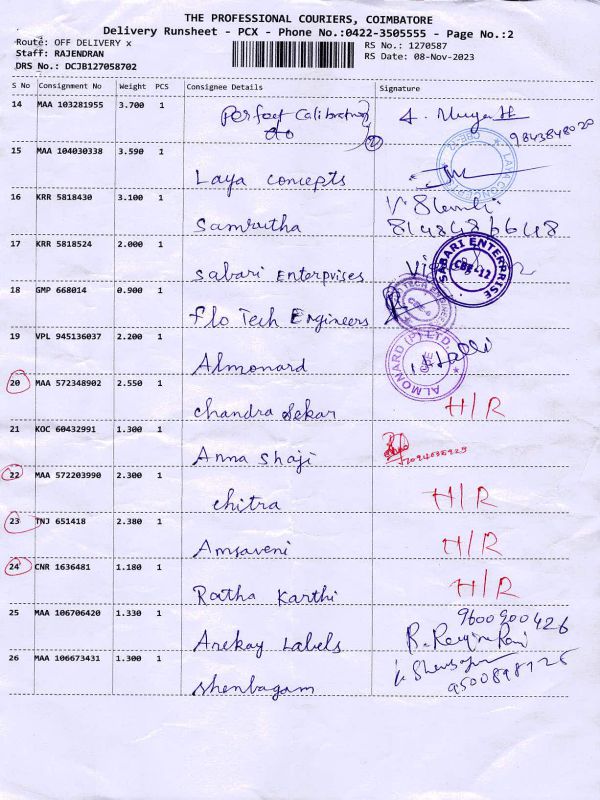 THE PROFESSIONAL COURIERS, COIMBATORE
Delivery Runsheet - PCX - Phone No.:0422-3505555 - Page No.:2
Route: OFF DELIVERY x
RS No.: 1270587
Staff: RAJENDRAN
RS Date: 08-Nov-2023
DRS No.: DCJB127058702
S No Consignment No Weight PCS Consignee Details Signature
14 MAA 103281955 3.700 1
Perfect Calibration
9843848020
15 MAA 104030338 3.590 1
Laya Concepts
LAYA CONCEPTS
16 KRR 5818430 3.100 1
Samrutha
17 KRR 5818524 2.000 1
Sabari Enterprises
SABARI ENTERPRISE
CBE-12
18 GMP 668014 0.900 1
Flo Tech Engineers
19 VPL 945136037 2.200 1
Almonard
ALMONARD (P) LTD
20 MAA 572348902 2.550 1
Chandra Sekar H/R
21 KOC 60432991 1.300 1
Anna Shaji
22 MAA 572203990 2.300 1
Chitra H/R
23 TNJ 651418 2.380 1
Amsaveni H/R
24 CNR 1636481 1.180 1
Ratha Karthi H/R
25 MAA 106706420 1.330 1
9600900426
Arekay Labels
26 MAA 106673431 1.300 1
Shenbagam